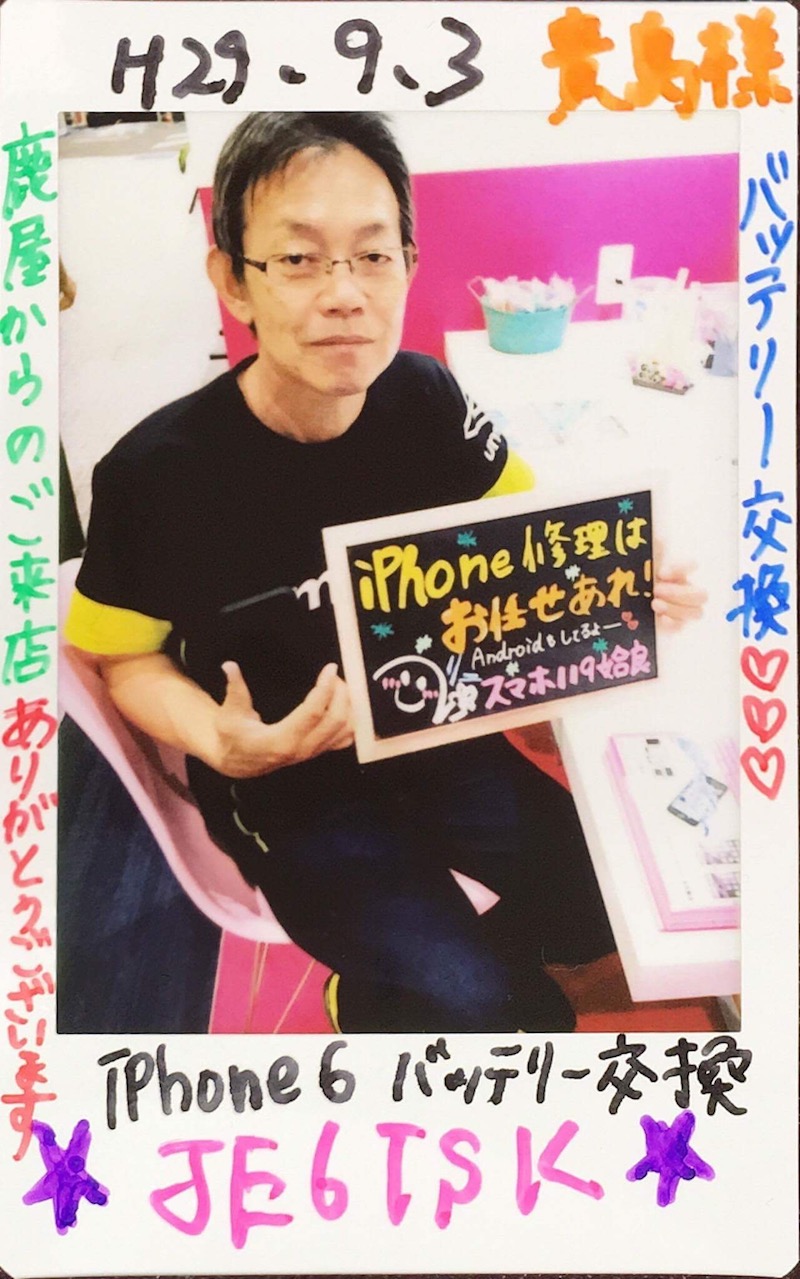 H29.9.3
貴島様
鹿屋からのご来店
ありがとうございます
バッテリー交換♡♡♡
iPhone修理は
お任せあれ!
Androidもしてるよー
スマホ119姶良
iPhone6 バッテリー交換
JE6TSK